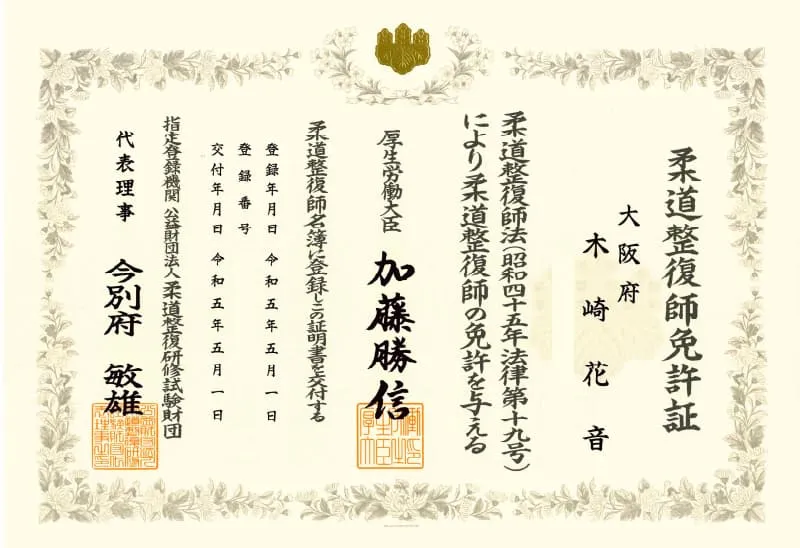 柔道整復師免許証
大阪府
木崎花音
柔道整復師法(昭和四十五年法律第十九号)
により柔道整復師の免許を与える
厚生労働大臣 加藤勝信
柔道整復師名簿に登録しこの証明書を交付する
登録年月日 令和五年五月一日
登録番号
交付年月日 令和五年五月一日
指定登録機関 公益財団法人柔道整復研修試験財団
代表理事 今別府 敏雄